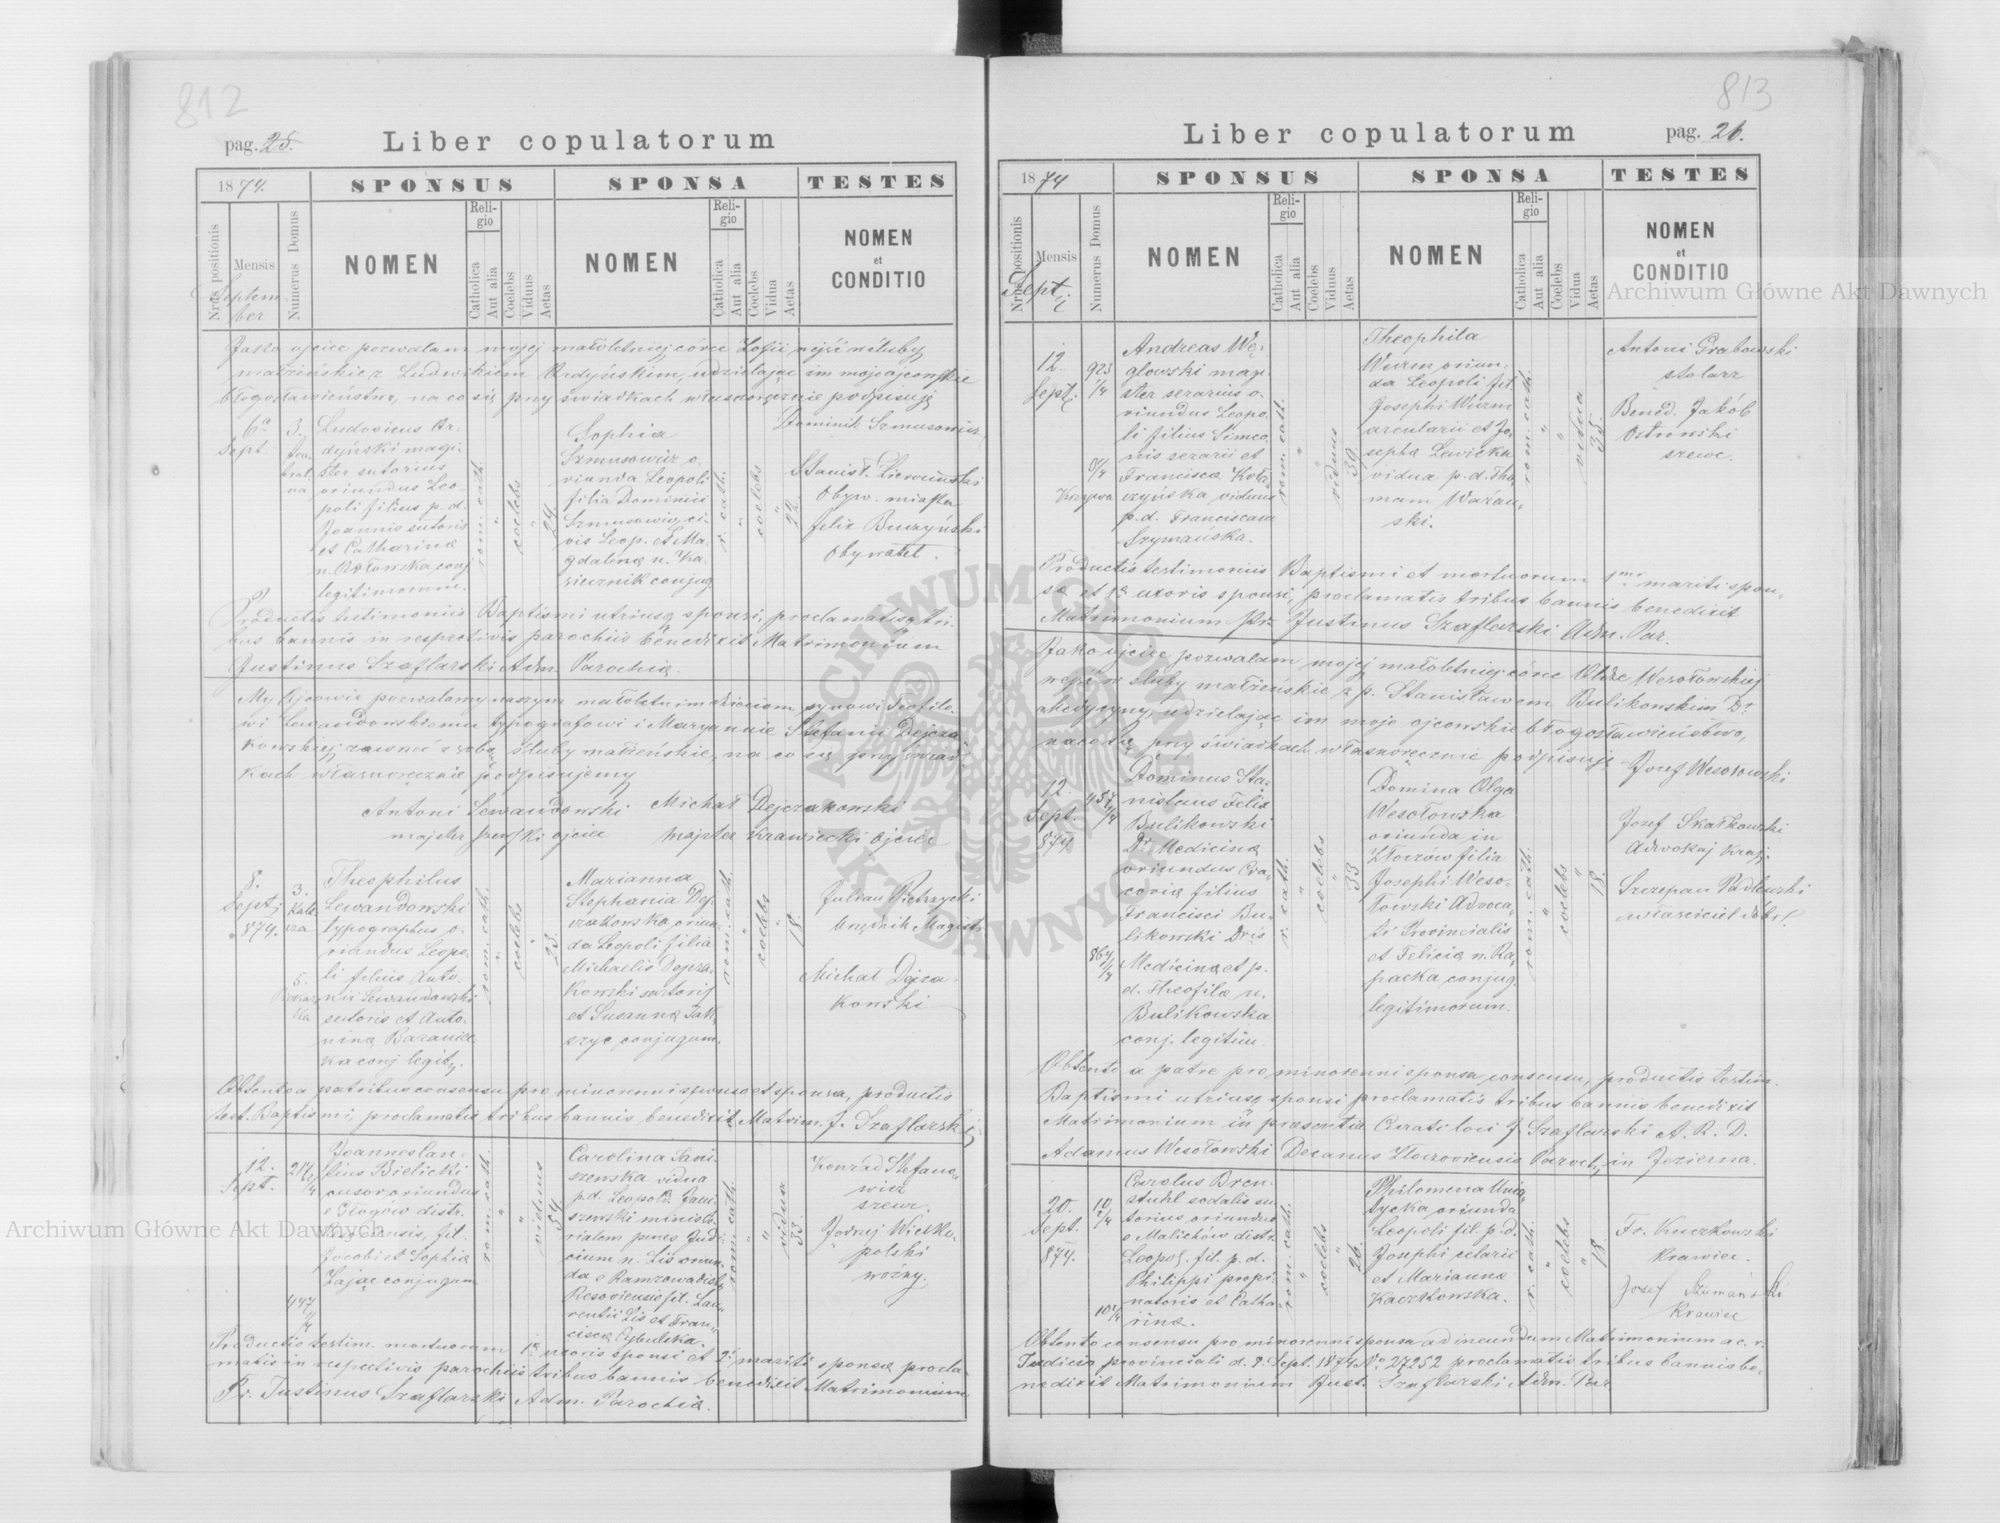 812
pag. 25.
Liber copulatorum
1874.
SPONSUS
SPONSA
TESTES
Nrus positionis
Mensis
Septem
ber
Numerus Domus
NOMEN
Reli-
gio
Catholica
Aut alia
Coelebs
Viduus
Aetas
NOMEN
Reli-
gio
Catholica
Aut alia
Coelebs
Vidua
Aetas
NOMEN
et
CONDITIO
Jako ojciec pozwalam mojej małoletniej córce Zofii wejść w śluby
małżeńskie z Ludwikiem Ardyńskim, udzielając im moje ojcowskie
błogosławieństwo, na co się przy świadkach własnoręcznie podpisuję
6a
Sept.
3.
Ludovicus Ar-
dyński magi-
ster sutorius
oriundus Leo-
poli filius p.d.
Joannis sutoris
et Catharinæ
conj
legitimorum.
rom. cath.
coelebs
24
Sophia
Szmusowicz o-
riunda Leopoli
filia Dominici
Szmusowicz ci-
vis Leop. et Ma-
gdalenæ n. Ka-
siecznik conjug
r. cath.
coelebs
22.
Dominik Szmusowicz
Stanisł.
Obyw. miasta
Felix Buczyński
Obywatel.
Productis testimoniis Baptismi utriusq sponsi, proclamatisq tri-
bus bannis in respectivis parochiis benedixit Matrimonium
Justinus Szaflarski Adm. Parochiæ.
My Ojcowie pozwalamy naszym małoletnim dzieciom synowi Teofilo-
wi Lewandowskiemu typografowi i Maryannie Stefanii Dejcza
kowskiej zawrzeć z sobą śluby małżeńskie, na co się przy świad
kach własnoręcznie podpisujemy
Antoni Lewandowski Michał Dejczakowski
majster szewski ojciec majster krawiecki ojciec
8.
Sept;
874.
3.
5.
Theophilus
Lewandowski
typographus o-
riundus Leopo-
li filius Anto-
nii Lewandowski
sutoris et Anto-
ninæ
conj legit.
rom. cath.
coelebs
23.
Marianna
Stephania Dej-
czakowska oriun-
da Leopoli filia
Michaelis Dejcza-
kowski sartoris
et Susannæ Jak-
szyc conjugum.
rom. cath.
coelebs
18.
Julian Pietrzycki
Urzędnik Magist.
Michał Dejcza-
kowski
Obtento a patribus consensu pro minorenni sponso et sponsa, productis
test. Baptismi, proclamatis tribus bannis benedixit Matrim. J. Szaflarski
12.
Sept.
217
2/4
447
Joannes Can-
tius Bielicki
cursor oriundus
e Głogów distr.
fil.
Jacobi et Sophiæ
Zając conjugum
rom. cath.
viduus
54
Carolina Jani-
szewska vidua
p.d. Leopold. Jani-
szewski ministe-
rialem penes Judi-
cium n. Lis oriun-
da e Ramzowa distr.
Resoviensis fil. Lau-
rentii Lis et Fran-
ciscæ Cybulska
rom. cath.
vidua
33.
Konrad Stefano-
wicz
szewc.
Jędrzej Wielko-
polski
woźny.
Productis testim. mortuorum 1æ uxoris sponsi et 2i mariti sponsæ procla-
matis in respectivis parochiis tribus bannis benedixit Matrimonium
Pr. Justinus Szaflarski Adm. Parochiæ.
813
Liber copulatorum
pag. 26.
1874
SPONSUS
SPONSA
TESTES
Nrus positionis
Mensis
Sept;
Numerus Domus
NOMEN
Reli-
gio
Catholica
Aut alia
Coelebs
Viduus
Aetas
NOMEN
Reli-
gio
Catholica
Aut alia
Coelebs
Vidua
Aetas
NOMEN
et
CONDITIO
12
Sept.
923
1/4
Andreas Wę-
głowski magi-
ster serarius o-
riundus Leopo-
li filius Simeo-
nis serarii et
Franciscæ Koła-
czyńska viduus
p.d. Franciscam
Szymańska.
rom. cath.
viduus
39
Theophila
Wurm oriun-
da Leopoli fil
Josephi Wurm
arcularii et Jo-
sephæ Lewicka
vidua p.d. Tho-
mam
ski.
rom. cath.
vidua
35.
Antoni Grabowski
stolarz
Bened. Jakób
Ostrowski
szewc.
Productis testimoniis Baptismi et mortuorum 1mi mariti spon-
sæ et 1æ uxoris sponsi, proclamatis tribus bannis benedixit
Matrimonium Pr. Justinus Szaflarski Adm. Par.
Jako ojciec pozwalam mojej małoletniej córce Oldze Wesołowskiej
wejść w śluby małżeńskie z p. Stanisławem Bulikowskim Dr.
Medycyny, udzielając im moje ojcowskie błogosławieństwo,
na co się przy świadkach własnoręcznie podpisuję Józef Wesołowski
12.
Sept.
874.
437
1/4
867
1/4
Dominus Sta-
nislaus Felix
Bulikowski
Dr. Medicinæ
oriundus Cra-
coviæ filius
Francisci Bu-
likowski Dris
Medicinæ et p.
d. Theofilæ n.
Bulikowska
conj. legitim.
r. cath.
coelebs
33
Domina Olga
Wesołowska
oriunda in
Złoczów filia
Josephi Weso-
łowski Advoca-
ti Provincialis
et Feliciæ n. Ra-
packa conjug.
legitimorum.
rom. cath.
coelebs
18.
Józef Skałkowski
Adwokaj Kraj.
Szczepan Padlewski
właściciel dóbr
Obtento a patre pro minorenni sponsa consensu, productis testim.
Baptismi utriusq sponsi proclamatis tribus bannis benedixit
Matrimonium in præsentia Curati loci J. Szaflarski A. R. D.
Adamus Wesołowski Decanus Złoczoviensis Paroch. in Jezierna.
20.
Sept.
874.
10
2/4
10 1/4
Carolus Bren-
stuhl sodalis su-
torius oriundus
e Malichów distr.
Leopol. fil. p.d.
Philippi propi-
natoris et Catha-
rinæ.
rom. cath.
coelebs
26.
Philomena Unia-
tycka oriunda
Leopoli fil. p.d.
Josephi celarii
et Mariannæ
Kaczkowska.
r. cath.
coelebs
18.
Fr. Kuczkowski
Krawiec.
Józef Szumański
Krawiec
Obtento consensu pro minorenni sponsa ad ineundum Matrimonium a c. r.
Judicio provinciali d. 9. Sept. 1874 No 27252 proclamatis tribus bannis be-
nedixit Matrimonium Just. Szaflarski Adm. Par.
Archiwum Główne Akt Dawnych
Archiwum Główne Akt Dawnych
ARCHIWUM GŁÓWNE AKT DAWNYCH